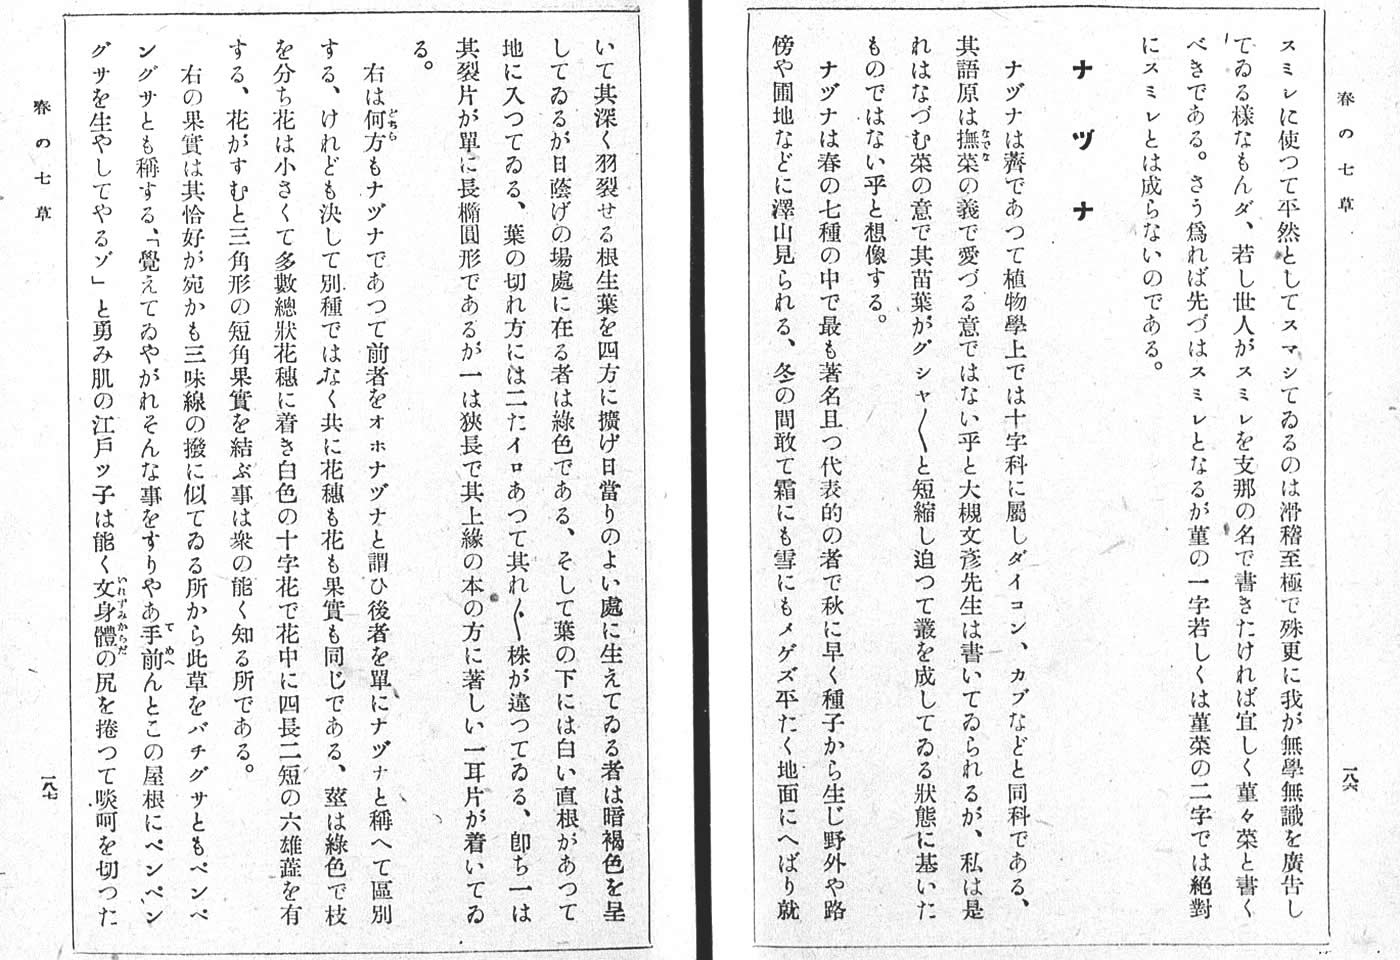 春の七草
一八六
スミレに使つて平然としてスマシてゐるのは滑稽至極で殊更に我が無學無識を廣告し
てゐる様なもんダ、若し世人がスミレを支那の名で書きたければ宜しく菫々菜と書く
べきである。さう爲れば先づはスミレとなるが菫の一字若しくは菫菜の二字では絕對
にスミレとは成らないのである。
ナヅナ
ナヅナは薺であつて植物學上では十字科に屬しダイコン、カブなどと同科である、
其語原は撫菜の義で愛づる意ではない乎と大槻文彥先生は書いてゐられるが、私は是
れはなづむ菜の意で其苗葉がグシャ〱と短縮し迫つて叢を成してゐる狀態に基いた
ものではない乎と想像する。
ナヅナは春の七種の中で最も著名且つ代表的の者で秋に早く種子から生じ野外や路
傍や圃地などに澤山見られる、冬の間敢て霜にも雪にもメゲズ平たく地面にへばり就
いて其深く羽裂せる根生葉を四方に擴げ日當りのよい處に生えてゐる者は暗褐色を呈
してゐるが日蔭げの場處に在る者は綠色である、そして葉の下には白い直根があつて
地に入つてゐる、葉の切れ方には二たイロあつて其れ〱株が違つてゐる、卽ち一は
其裂片が單に長橢圓形であるが一は狹長で其上緣の本の方に著しい一耳片が着いてゐ
る。
右は何方もナヅナであつて前者をオホナヅナと謂ひ後者を單にナヅナと稱へて區別
する、けれども決して別種ではなく共に花穗も花も果實も同じである、莖は綠色で枝
を分ち花は小さくて多數總狀花穗に着き白色の十字花で花中に四長二短の六雄蕋を有
する、花がすむと三角形の短角果實を結ぶ事は衆の能く知る所である。
右の果實は其恰好が宛かも三味線の撥に似てゐる所から此草をバチグサともペンペ
ングサとも稱する、「覺えてゐやがれそんな事をすりやあ手前んとこの屋根にペンペン
グサを生やしてやるゾ」と勇み肌の江戶ツ子は能く文身體の尻を捲つて啖呵を切つた
春の七草
一八七